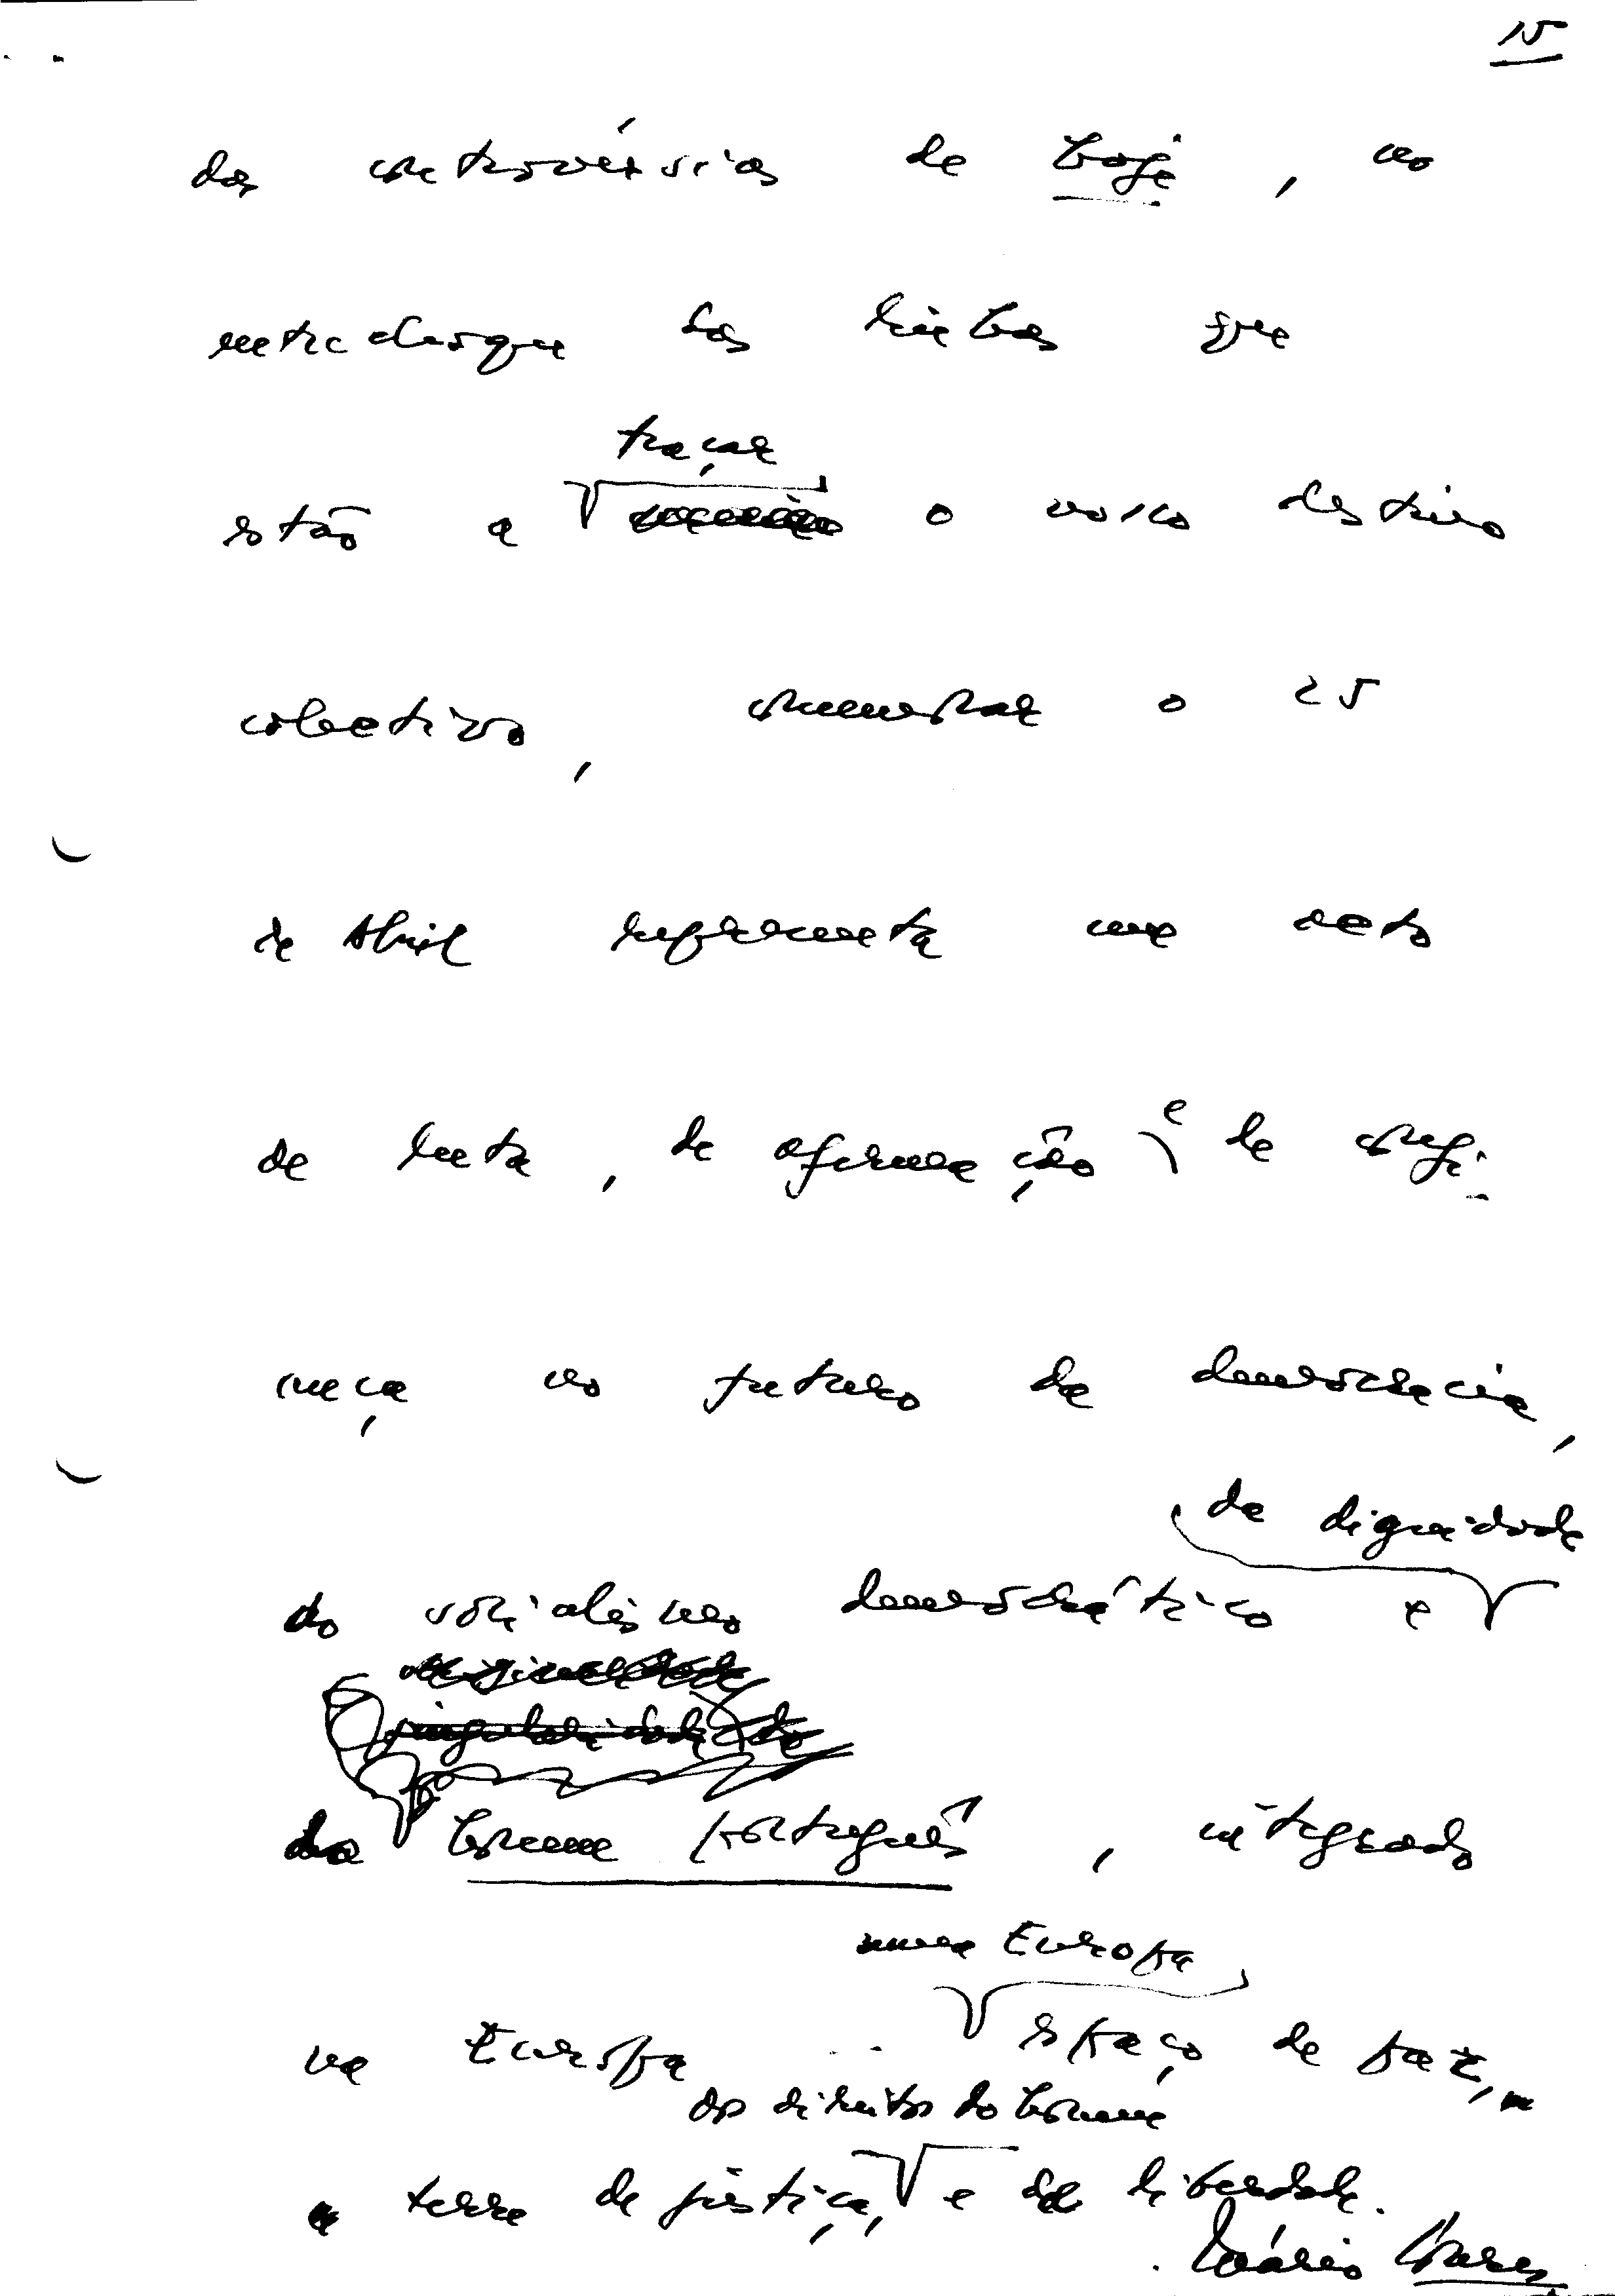 15
das controvérsias de hoje, no
entrechoque das linhas que
traçar
estão a o nosso destino
colectivo, comemorar o 25
de Abril representa um acto
de luta, de afirmação e de confi-
ança no futuro da democracia,
da dignidade
do socialismo democrático e
originalidade
singularidade do
do homem português, integrado
numa Europa
na Europa espaço de paz,
dos direitos do homem
terra de justiça, e de liberdade.
Mário Soares